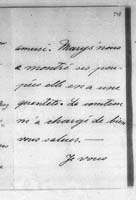 amusé. Marys' nous
a montré ses pou-
pées elle en a une
quantité. Le comte m
m'a chargé de bien
vous saluer. —
Je vous